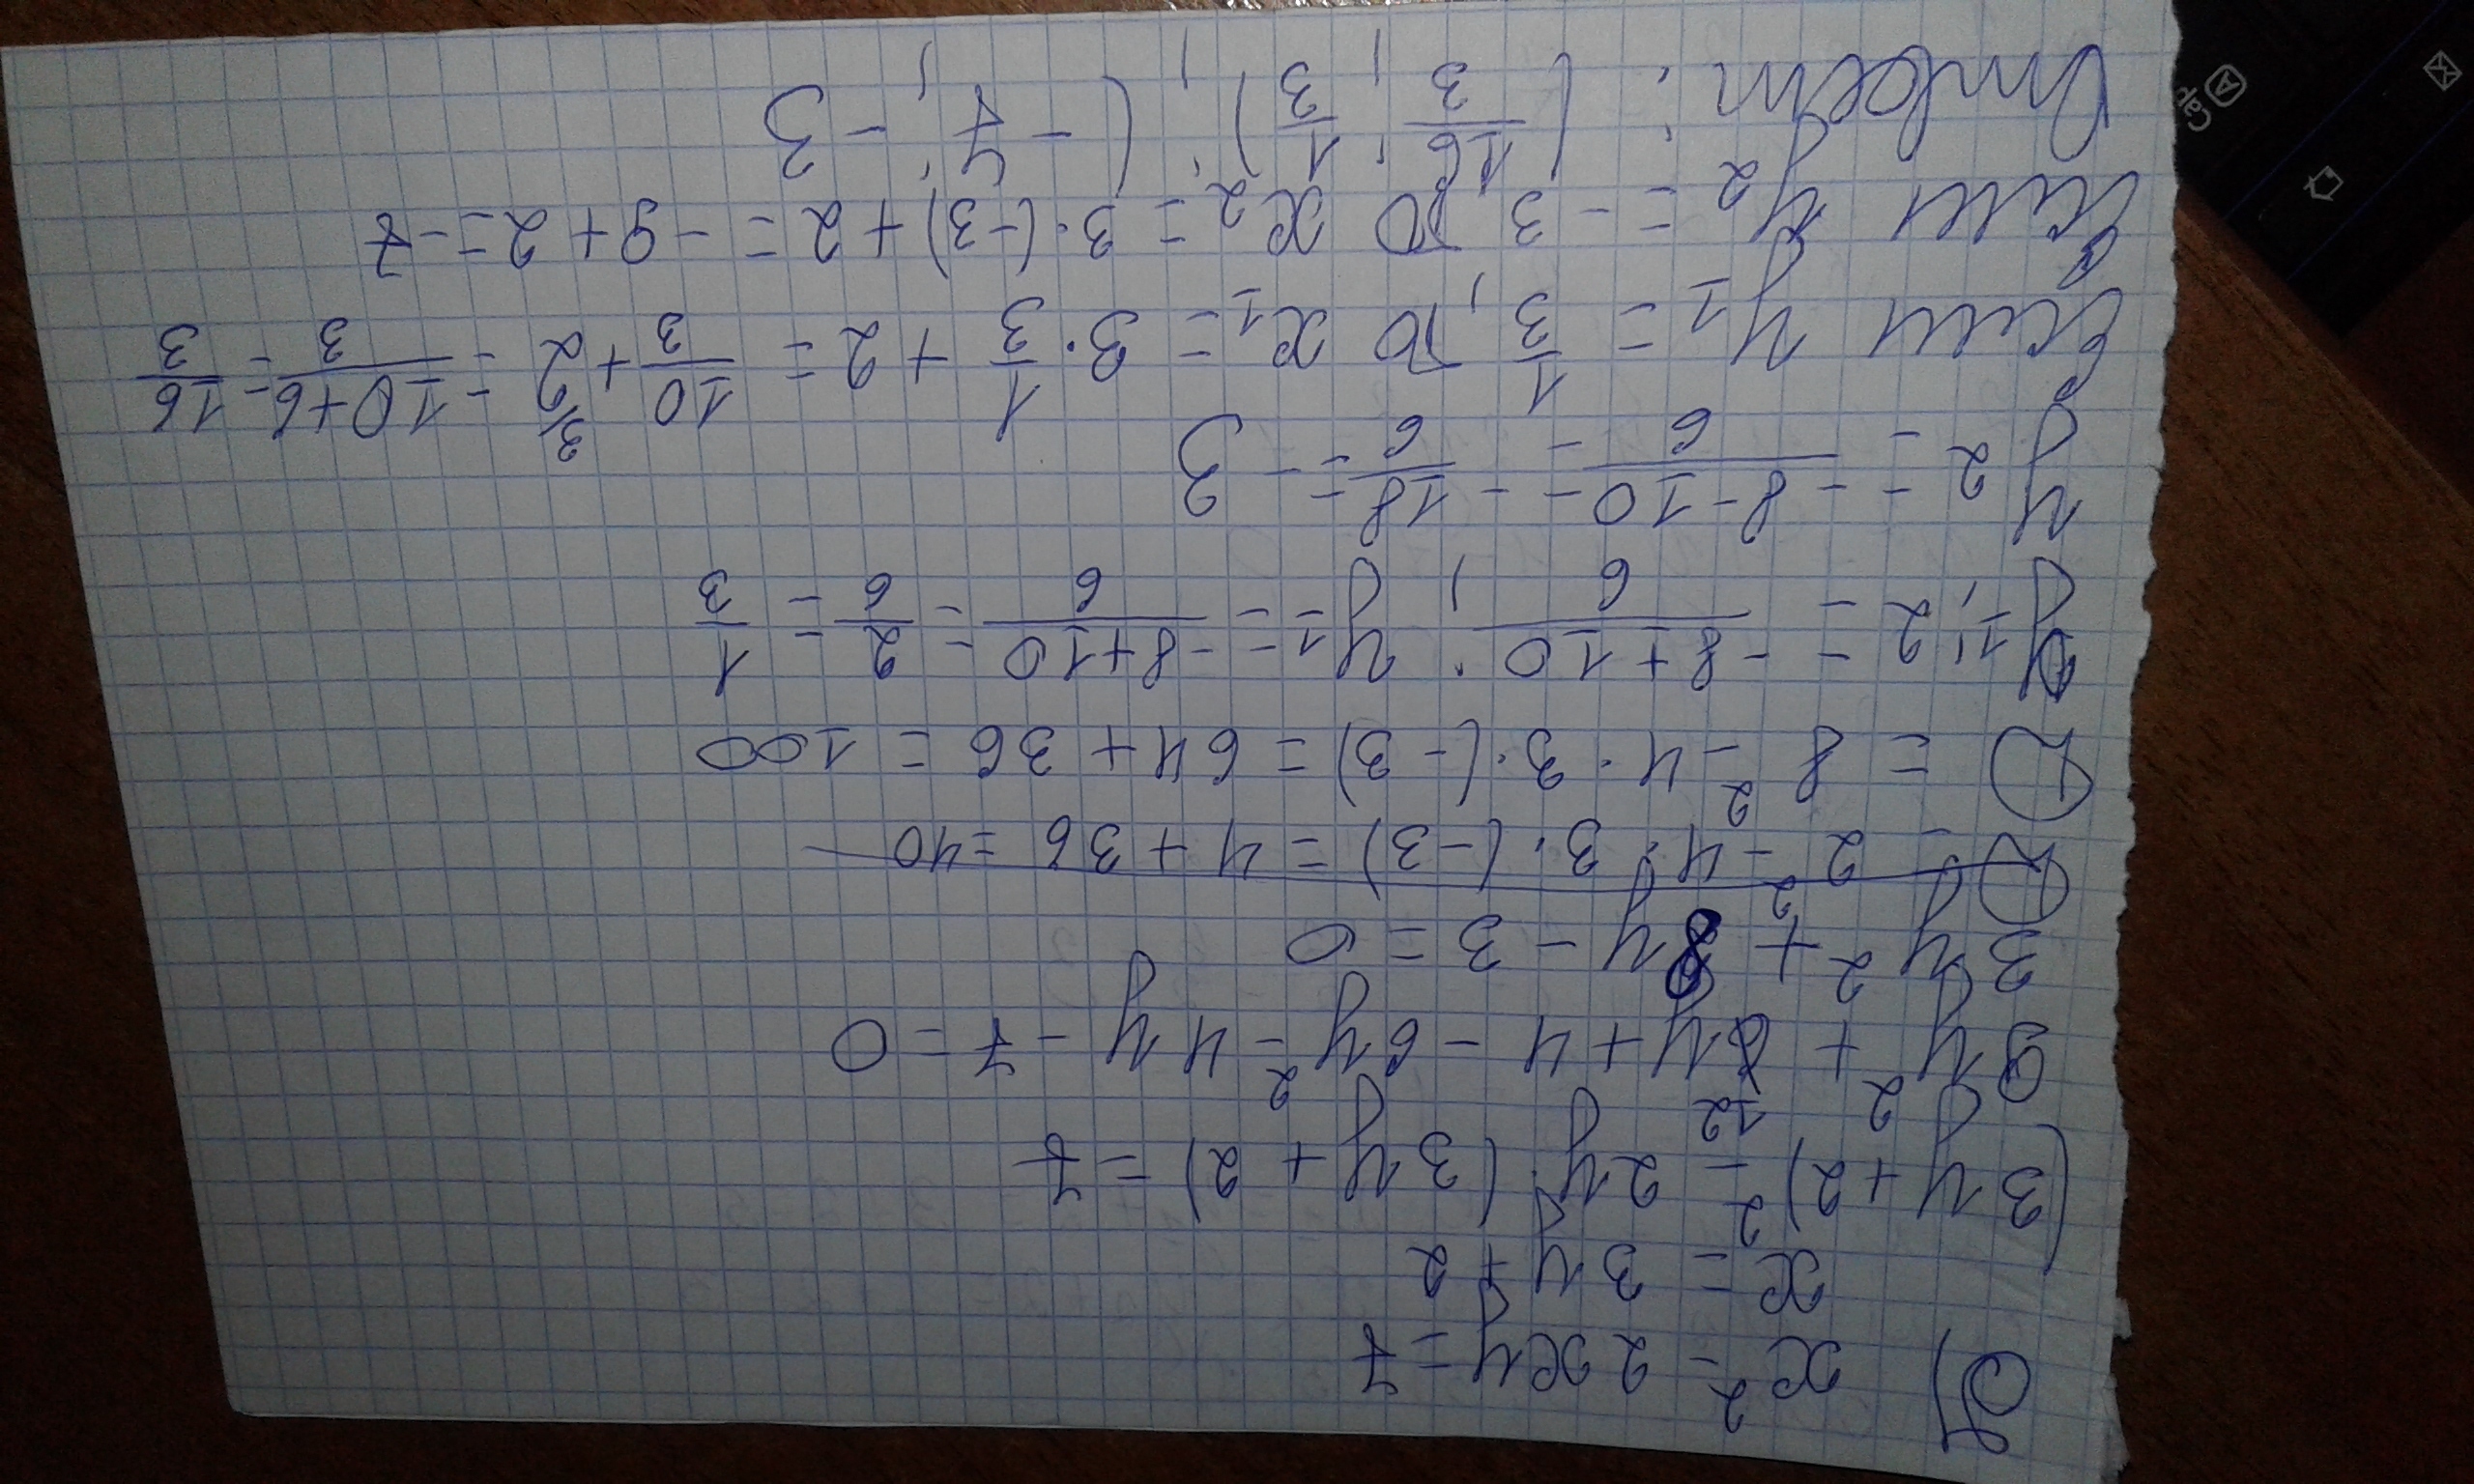 д) x² - 2xy = 7
x = 3y + 2
(3y + 2)² - 2y · (3y + 2) = 7
9y² + 12y + 4 - 6y² - 4y - 7 = 0
3y² + 8y - 3 = 0
D = 2² - 4 · 3 · (-3) = 4 + 36 = 40
D = 8² - 4 · 3 · (-3) = 64 + 36 = 100
y1,2 = (-8 ± 10)/6; y1 = (-8 + 10)/6 = 2/6 = 1/3
y2 = (-8 - 10)/6 = -18/6 = -3
Если y1 = 1/3, то x1 = 3 · 1/3 + 2 = 10/3 + 2 = (10 + 6)/3 = 16/3
Если y2 = -3, то x2 = 3 · (-3) + 2 = -9 + 2 = -7
Ответ: (16/3; 1/3); (-7; -3
Сар
A